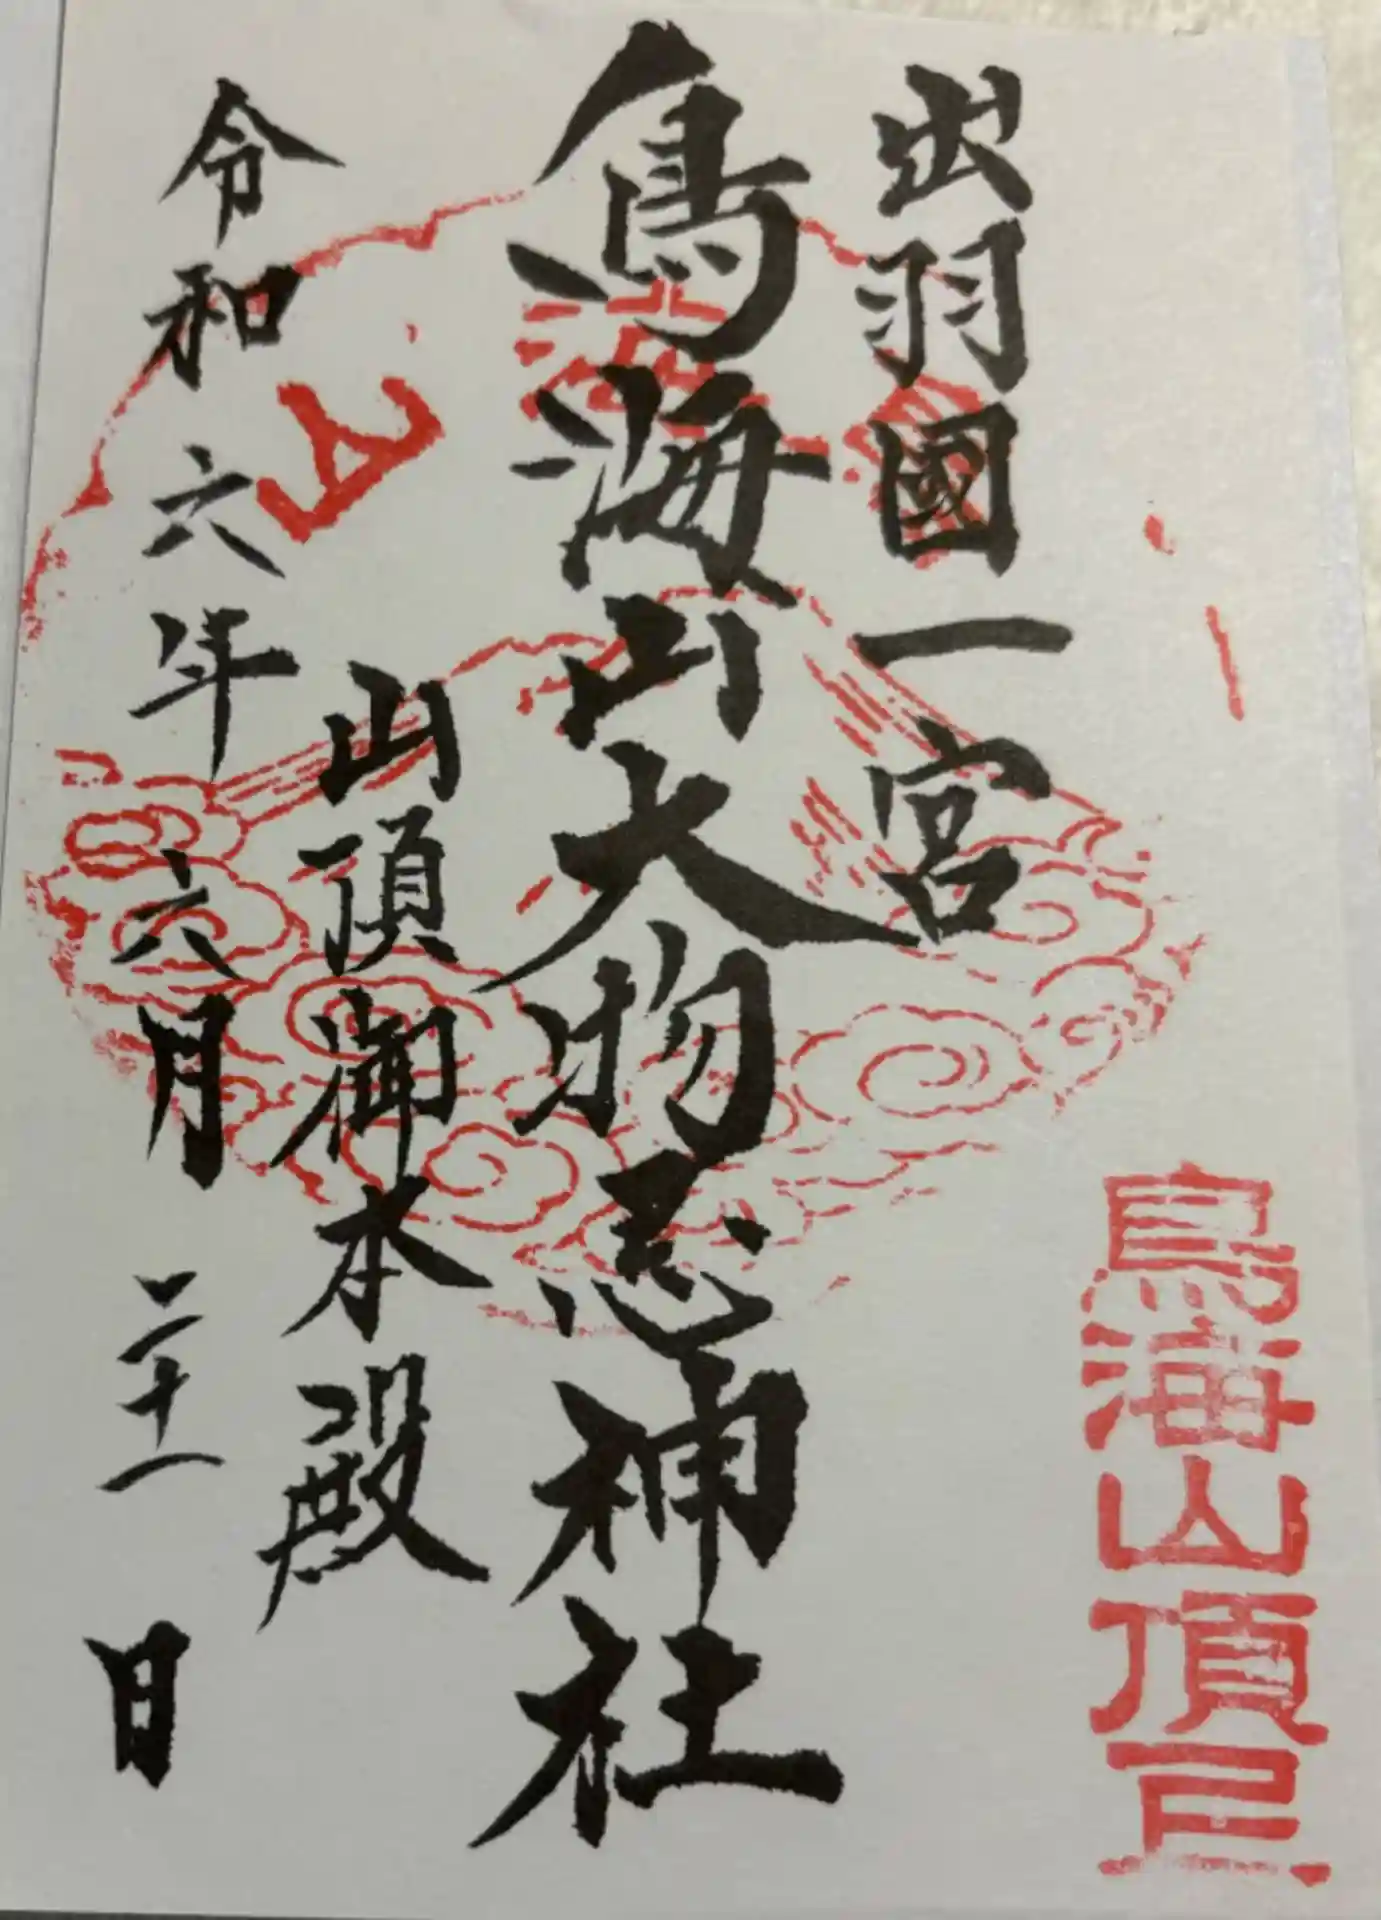 鳥海山頂
出羽國一宮
鳥海山大物忌神社
山頂御本殿
令和六年六月二十一日
鳥海山